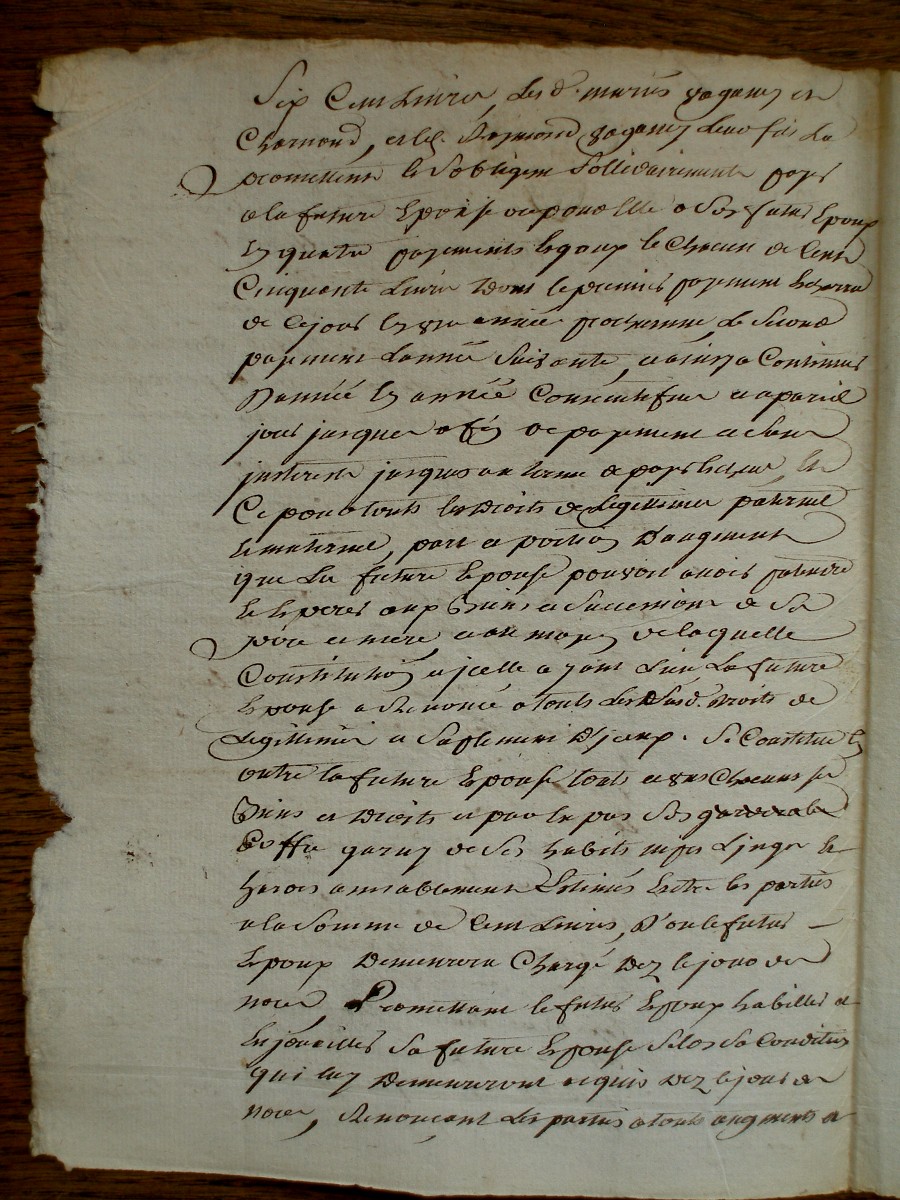 Six Cent Livres, Les d. mariés gaganes et
Charnond, et le s. Raymond gaganes Leur fils La
promettent et S'obligent sollidairement payer
a la future Epouse ou pour Elle a Son futur Epoux
En quatre payements Egaux de Chacun de Cent
Cinquante Livres dont le premier payement Echerra
de Ce jour En une année prochaine, Le Second
payement L'année Suivante, et ainsy a Continuer
D'année En année Consecutifves et a pareil
jour jusques a fin de payement et Sans
jnterests jusques au terme de paye Echeu, Et
Ce pour touts les droits de Legittime paternel
et maternel, part et portion D'augment
que La future Epouse pouvoit avoir pretendre
et Esperer aux Biens et Successions de Sa
père et mère, et au moyen de laquelle
Constitution et jcelle ayant Lieu La future
Epouse a Renoncé a touts Les Susd. droits de
Legittime et Suplement D'jceux. Se Constitue En
outre la future Epouse touts et uns Chacuns ses
Biens et Droits et par Exprès Ses
Coffre garny de Ses habits nipes Linges et
hardes amiablement Estimés Entre les parties
a la Somme de Cent Livres, D'ou le futur
Epoux Demeurera Chargé Dez le jour des
noces, Promettant le futur Epoux habiller et
Enjoueiller Sa future Epouse Selon Sa Condition
qui luy Demeureront acquis Dez le jour des
noces, Renonçant Les parties a touts augments et